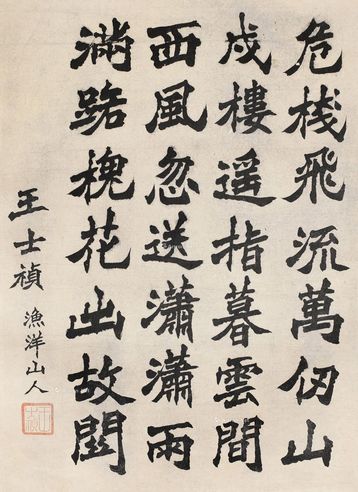 危棧飛流萬仞山
戍樓遥指暮雲間
西風忽送瀟瀟雨
滿路槐花出故関
王士禎 漁洋山人